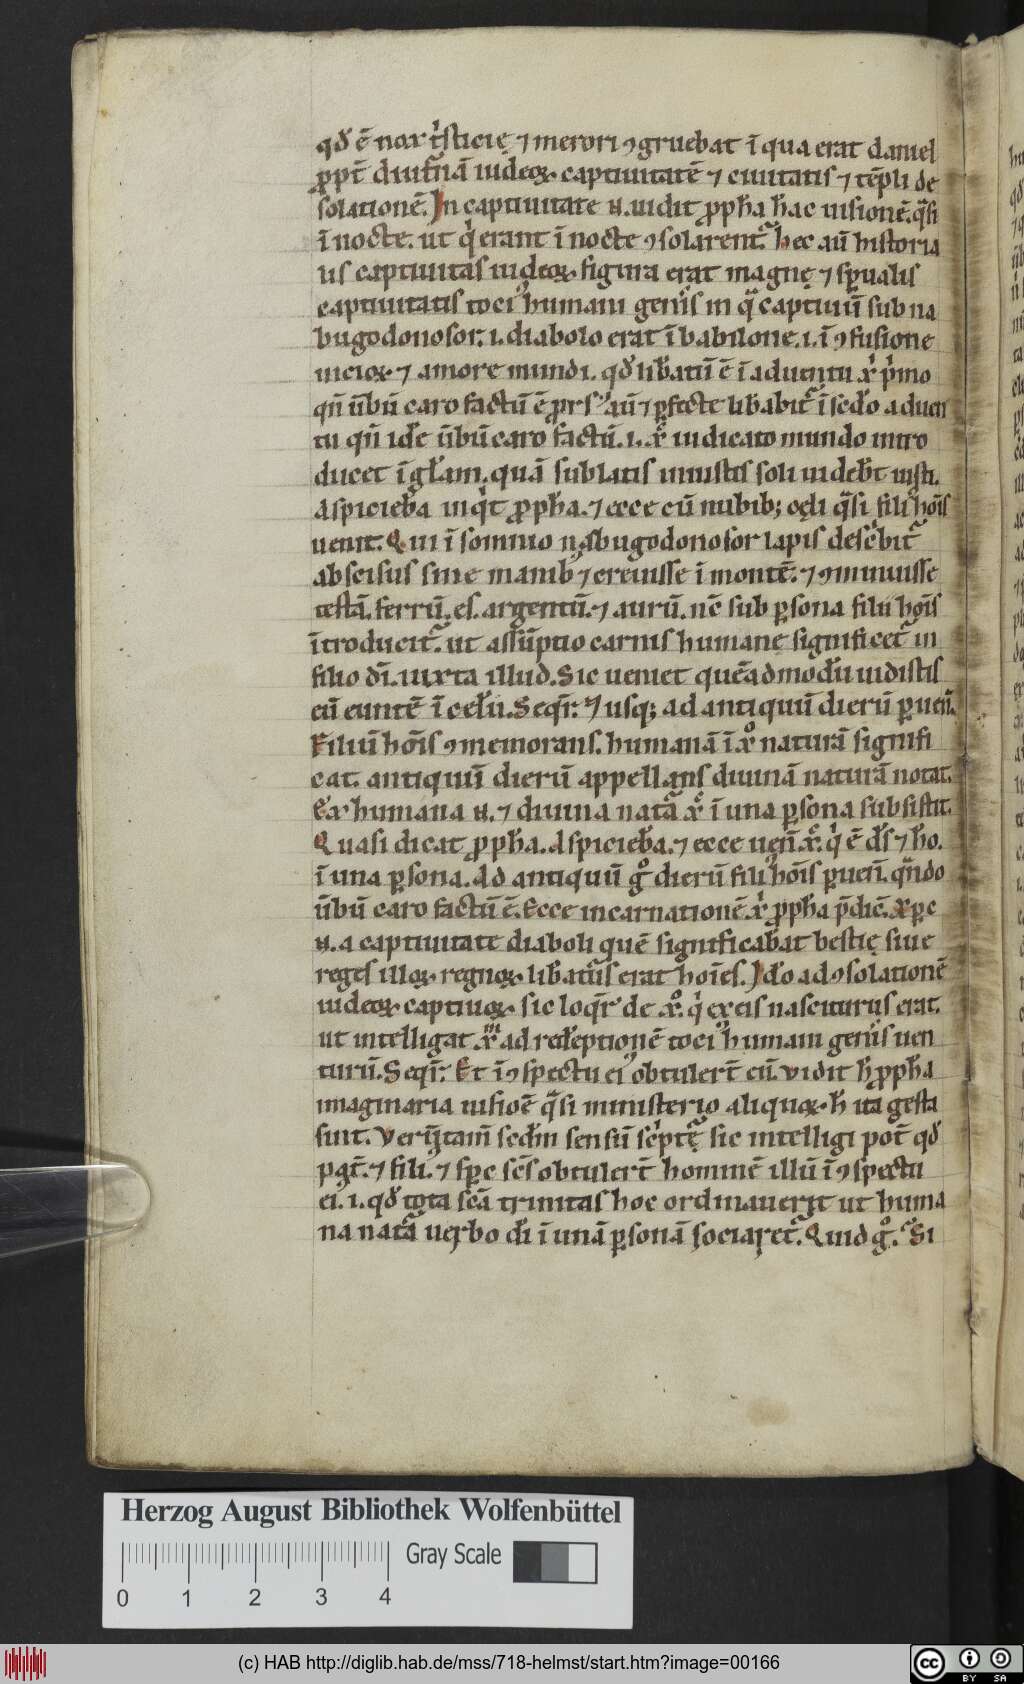 qđ ē nox t͛sticię ⁊ merori ꝯgruebat ī qua erat daniel
ꝓpt̄ diut̄nā iudeoꝝ captiuitatē ⁊ ciuitatis ⁊ tēpli de
solationē. In captiuitate .n. uidit ꝓph̄a hāc uisionē. q̄si
ī nocte. ut q̇ erant ī nocte ꝯsolarent᷑. hec aū historia
us captiuitas iudeoꝝ figura erat magnę ⁊ sp̄ualis
captiuitatis tociꝰ humani gen̄is in q̄ captiuū sub na
bugodonosor. .i. diabolo erat ī babilone. .i. ī ꝯfusione
uicioꝝ ⁊ amore mundi. qđ lib̄atū ē ī aduentu xp̄i p̄mo
qn̄ ūbū caro factū ē ꝓrsꝰ aū ⁊ ꝑfecte lib̄abit᷑ ī sedo aduen
tu qn̄ idē ūbū caro factū. .i. xp̄c iudicato mundo intro
ducet ī gl̄am. quā sublatis iniustis soli uideb̄t iusti.
Aspicieb̄a inq̇t ꝓph̄a. ⁊ ecce cū nubibꝫ cęli q̄si filiꝰ hōis
uenit. Qui ī somnio nabugodonosor lapis desc̄bit᷑
abscisus sine manibꝰ ⁊ creuisse ī montē. ⁊ ꝯminuisse
testā. ferrū. es. argentū. ⁊ aurū. nc̄ sub ꝑsona filii hōis
ītroducit᷑. ut assūptio carnis humanę significet᷑ in
filio dī. iuxta illud. Sic ueniet quēadmodū uidistis
eū euntē ī celū. Seqr̄. ⁊ usqꝫ ad antiquū dierū ꝑuen̄.
Filiū hōis ꝯmemorans. humanā ī xp̄o naturā signifi
cat. antiquū dierū appellans diuinā naturā notat.
Ex humana .n. ⁊ diuina nat̄a xp̄c ī una ꝑsona subsistit.
Quasi dicat ꝓph̄a. Aspicieb̄a. ⁊ ecce uen̄. xp̄c. q̇ ē ds̄ ⁊ hō.
ī una ꝑsona. Ad antiquū gͦ dierū filiꝰ hōis ꝑuen̄. qn̄do
ūbū caro factū ē. Ecce incarnationē xp̄i ꝓph̄a p̄dic̄. xp̄c
.n. a captiuitate diaboli quē significab̄at bestię siue
reges illoꝝ regnoꝝ lib̄atuꝰ erat hoīes. Ido ad ꝯsolationē
iudeoꝝ captiuoꝝ sic loqr̄ de xp̄o. q̇ ex eis nasciturus erat.
ut intelligat xp̄m ad redēptionē tociꝰ humani gen̄is uen
turū. Seqr̄. Et ī ꝯspectu eiꝰ obtulert̄ eū. Vidit h̄ ꝓph̄a
imaginaria uisiōe q̄si ministerio aliquoꝝ h̄ ita gesta
sunt. Verūtam̄ scd̄m sensū sc̄ptę sic intelligi pot̄ qđ
pat̄. ⁊ filiꝰ. ⁊ sp̄c sc̄s obtulert̄ hominē illū ī ꝯspectu
eiꝰ. .i. qđ tota sc̄a trinitas hoc ordinauerit ut huma
na nat̄a uerbo dī ī unā ꝑsonā sociaret᷑. Quid gͦ. Si
Herzog August Bibliothek Wolfenbüttel
Gray Scale
0 1 2 3 4
(c) HAB http://diglib.hab.de/mss/718-helmst/start.htm?image=00166
cc BY SA